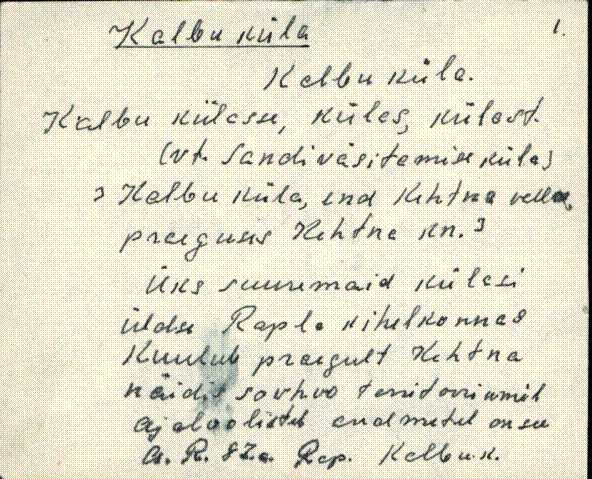 Kalbu küla 1.
Kalbu küla.
Kalbu külasse, külas, külast.
(vt. Sandiväsitamise küla)
Kalbu küla, end Kehtna vallas,
praeguses Kehtna kn.
Üks suuremaid külasi
üldse Rapla kihelkonnas
Kuulub praegult Kehtna
näidis sovhoo territooriumil
ajaloolistel andmetel on see
a. R. Rap. Kalbu k.